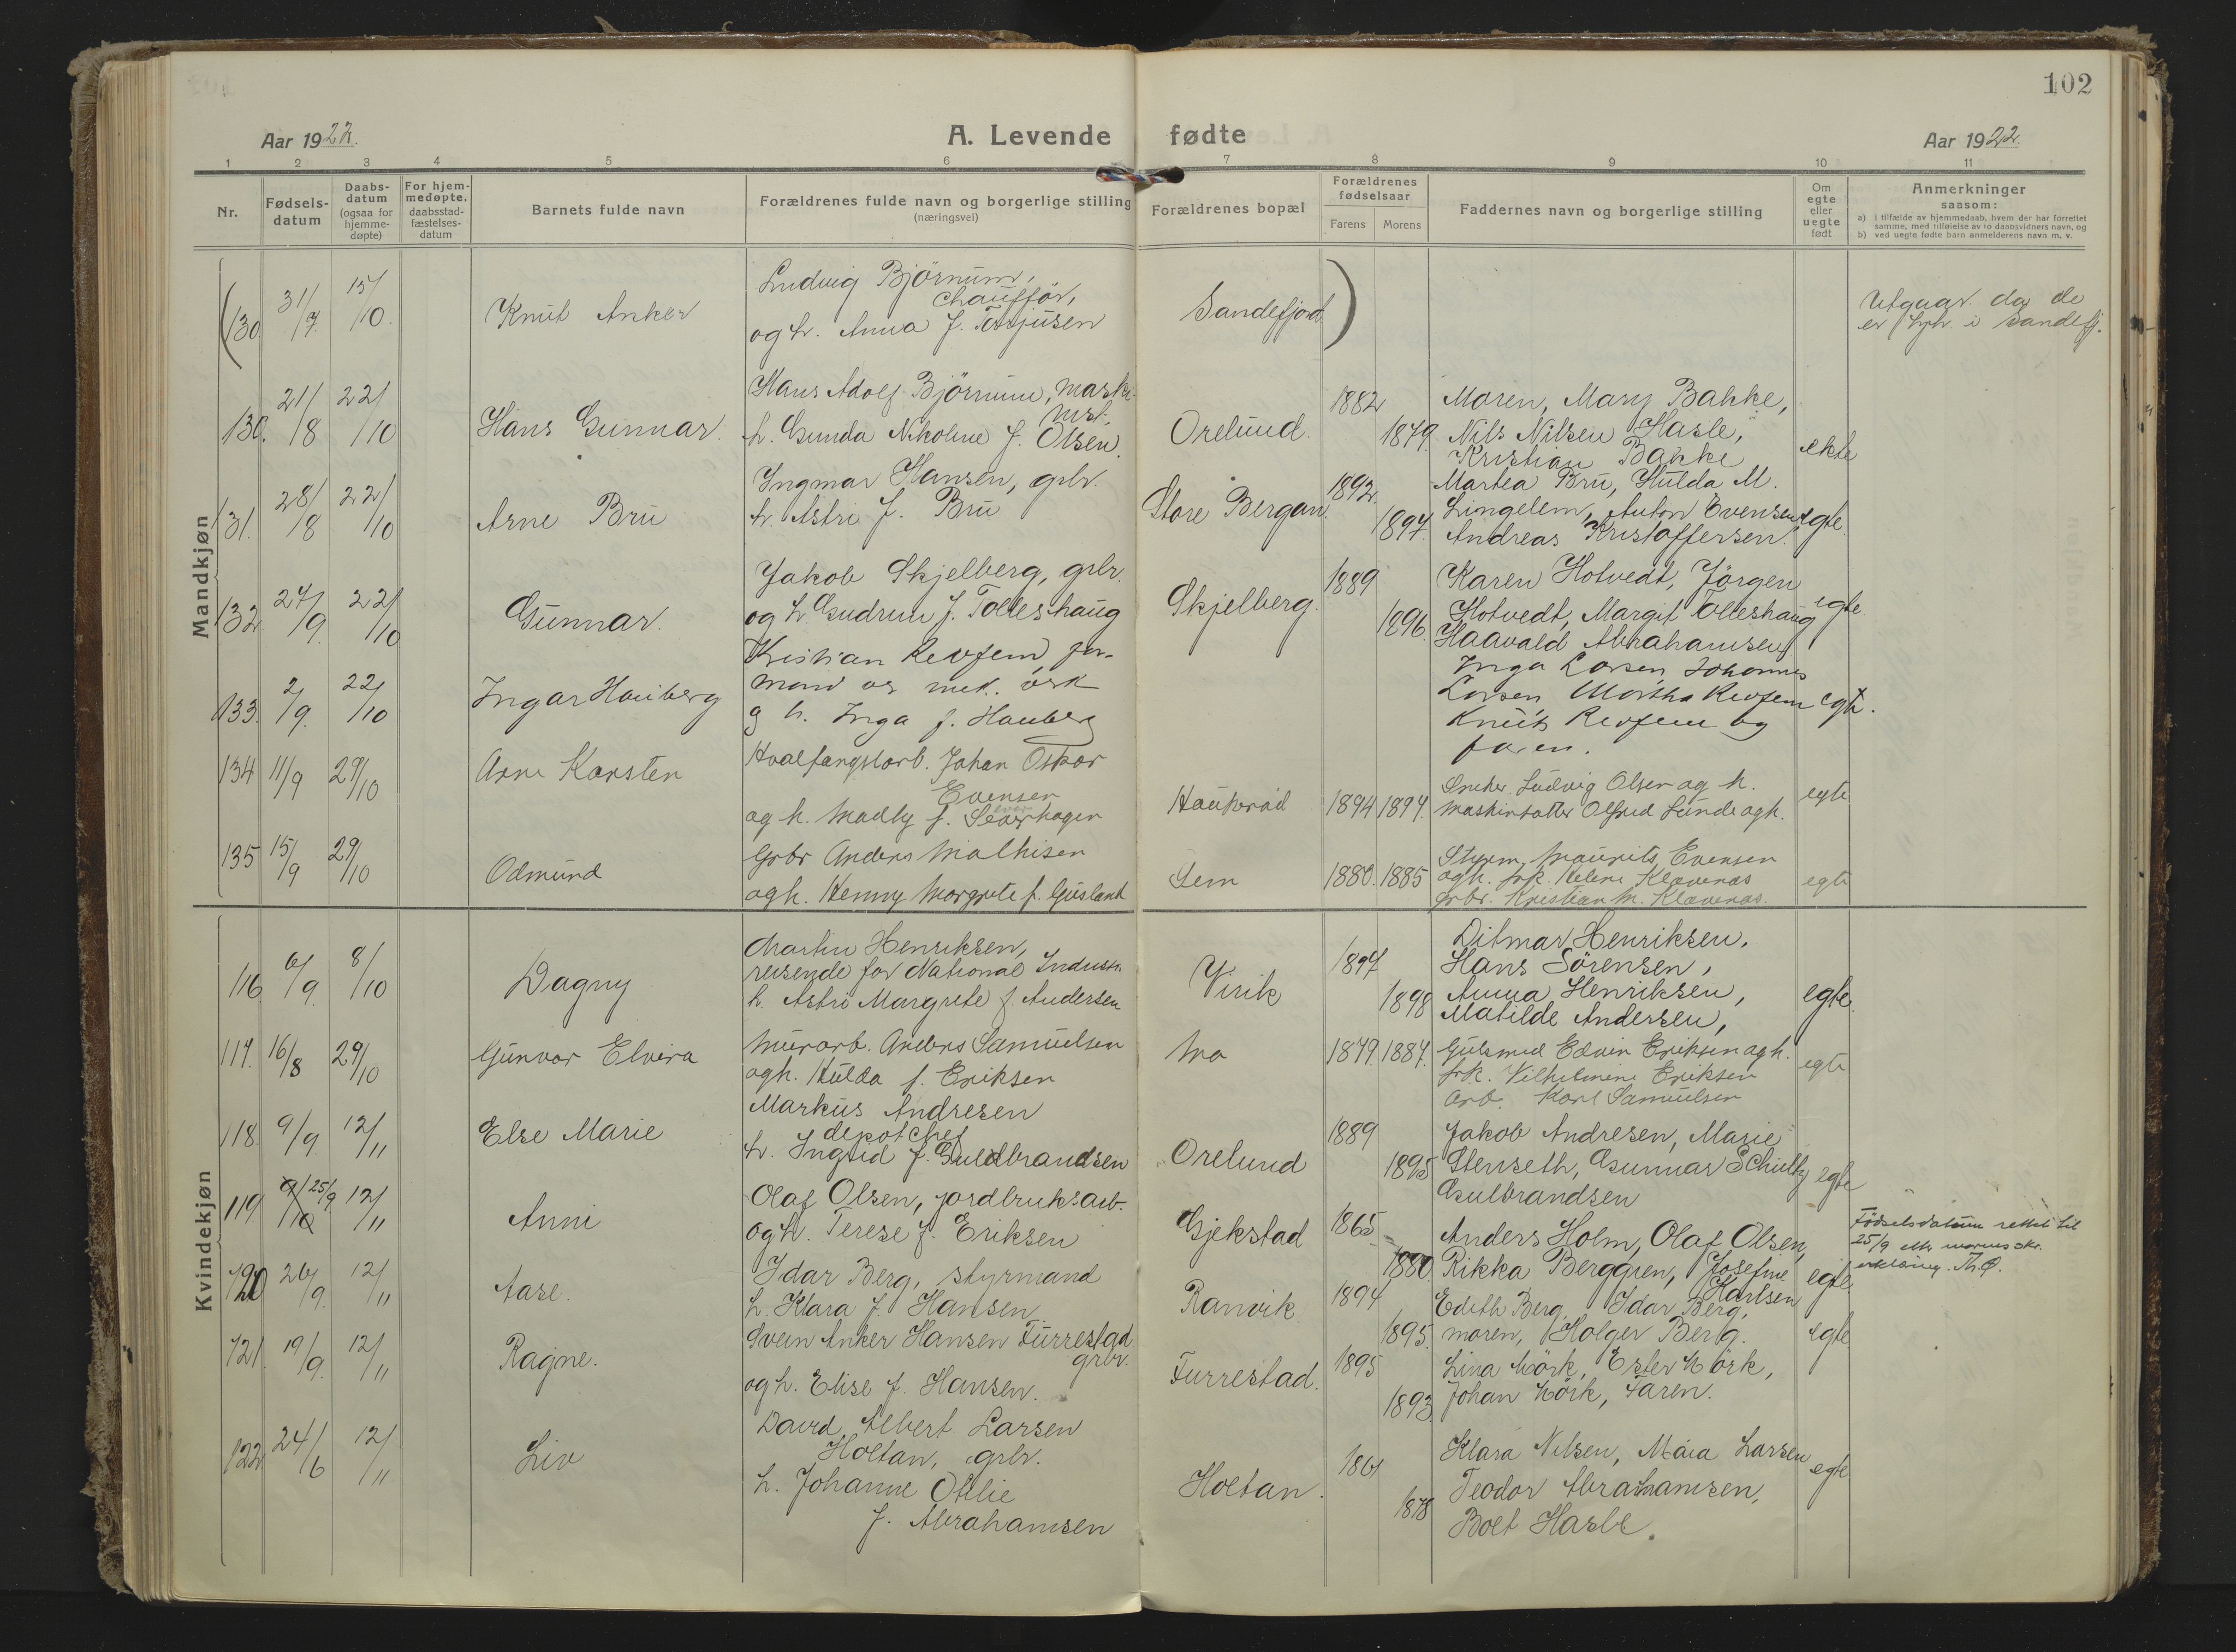 102
Aar 1922.
A. Levende fødte
Aar 1922.
1 2 3 4 5 6 7 8 9 10 11
Nr.
Fødsels-
datum
Daabs-
datum
(ogsaa for
hjemme-
døpte)
For hjem-
medøpte,
daabsstad-
fæstelses-
datum
Barnets fulde navn
Forældrenes fulde navn og borgerlige stilling
(næringsvei)
Forældrenes bopæl
Forældrenes
fødselsaar
Farens Morens
Faddernes navn og borgerlige stilling
Om
egte
eller
uegte
født
Anmerkninger
saasom:
a) i tilfælde av hjemmedaab, hvem der har forrettet
samme, med tilføielse av to daabsvidners navn, og
b) ved uegte fødte barn anmelderens navn m. v.
Mandkjøn
(130 31/7. 15/10. Knut Anker
Ludvig Bjørnum,
chauffør,
og h. Anna f. Terjusen
Sandefjord)
Utgaar da de
er i Sandefj.
130. 21/8 22/10 Hans Gunnar.
Hans Adolf Bjørnum, maski
mst.
h. Gunda Nikoline f. Olsen.
Orelund.
1882 1879.
Moren, Mary Bakke,
Nils Nilsen Hasle,
Kristian Bakke
ekte
131. 28/8 22/10 Arne Bru
Ingmar Hansen, grbr.
h. Astri f. Bru
Store Bergan.
1892. 1897.
Martea Bru, Hulda M.
Lingelem, Anton Evensen
Andreas Kristoffersen.
egte
132 27/9. 22/10 Gunnar.
Jakob Skjelberg, grbr.
og h. Gudrun f. Tolleshaug
Skjelberg.
1889 1896.
Karen Hotvedt, Jørgen
Hotvedt, Margit Tolleshaug
Haavald Abrahamsen
egte
133. 2/9. 22/10 Ingar Hauberg
Kristian Revfem, for-
mand
g h. Inga f. Hauberg
Inga Larsen, Johannes
Larsen, Martha Revfem
Knut Revfem og
faren.
egte.
134 11/9 29/10 Arne Karsten
Hvalfangstarb. Johan Oskar
Evensen
og h. Madly f.
Haukerød
1894 1897.
Sneker Ludvig Olsen og h.
Maskinsatter Olfred Lunde og h.
egte
135 15/9 29/10 Odmund
Grbr Anders Mathisen
og h. Henny Margrete f. Gusland
Gem
1880. 1885
Styrm. Maurits Evensen
og h. frk. Helene Klavenes
grbr. Kristian M. Klavenes.
egte
Kvindekjøn
116 6/9. 8/10 Dagny
Martin Henriksen,
reisende for National Industri
h. Astri Margrete f. Andersen
Virik
1897 1898
Ditmar Henriksen,
Hans Sørensen,
Anna Henriksen,
Matilde Andersen,
egte.
117. 16/8 29/10 Gunvor Elvira
Murarb. Anders Samuelsen
og h. Hulda f. Eriksen
Mo
1879. 1887.
Gulsmed Edvin Eriksen og h.
frk. Vilhelmine Eriksen
Arb. Karl Samuelsen
egte
118. 9/9. 12/11 Else Marie
Markus Andresen
depotchef
h. Ingrid f. Guldbrandsen
Orelund
1889 1895
Jakob Andresen, Marie
Stenseth, Gunnar Schultz
Gulbrandsen
egte
119. 9/10 25/9 12/11 Anni
Olaf Olsen, jordbruksarb.
og h. Terese f. Eriksen
Gjekstad
1865 1880.
Anders Holm, Olaf Olsen,
Rikka Berggren, Josefine
Karlsen
egte
Fødselsdatum rettet til
25/9 efter morens skr.
erklæring. Th. Ø.
120 26/9. 12/11 Aase.
Idar Berg, styrmand
h. Klara f. Hansen.
Ranvik
1894 1895.
Edith Berg, Idar Berg,
moren, Holger Berg.
egte
121. 19/9. 12/11 Ragne.
Svein Anker Hansen Furrestad
grbr.
og h. Elise f. Hansen.
Furrestad.
1895 1893
Lina Mørk, Ester Mørk,
Johan Mørk, Faren.
122. 24/6 12/11 Liv
David Albert Larsen
Holtan, grbr.
h. Johanne Otilie
f. Abrahamsen
Holtan.
1878
Klara Nilsen, Maia Larsen
Teodor Abrahamsen,
Bolt Hasle.
egte